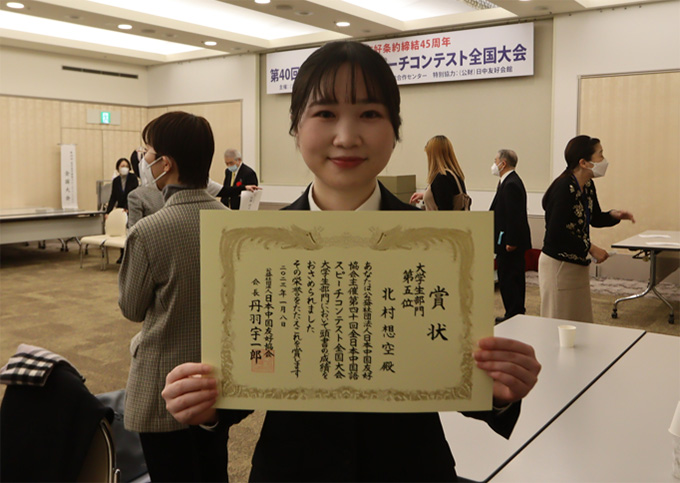 好条約締結45周年
第40回
スピーチコンテスト全国大会
特別協力：（公財）日中友好会館
賞状
大学生部門
第五位
北村想空殿
あなたは公益社団法人日本中国友好
協会主催第四十回全日本中国語
スピーチコンテスト全国大会
大学生部門において頭書の成績を
おさめられました
その栄誉をたたえこれを賞します
二〇二三年一月八日
公益社団法人日本中国友好協会
会長 丹羽宇一郎